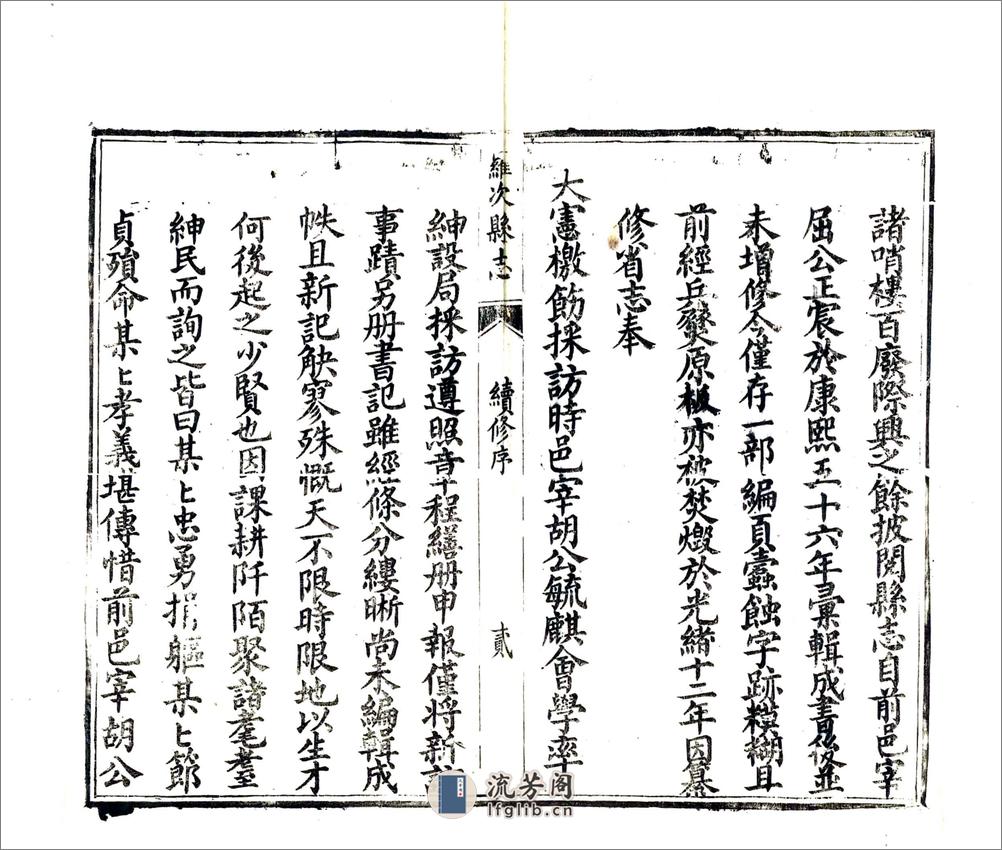 諸哨樓百廢際興之餘披閱縣志自前邑宰
屈公正宸於康熙五十六年彙輯成書後並
未增修今僅存一部編頁蠹蝕字跡糢糊且
前經兵燹原板亦被焚燬於光緒十二年因纂
修省志奉
大憲檄飭採訪時邑宰胡公毓麒會學率
羅次縣志
續修序
貳
紳設局採訪遵照章程繕册申報僅將新
事蹟另册書記雖經條分縷晰尚未編輯成
帙且新記觖寥殊慨天不限時限地以生才
何後起之少賢也因課耕阡陌聚諸耄耋
紳民而詢之皆曰某〻忠勇捐軀某〻節
貞殞命某〻孝義堪傳惜前邑宰胡公
流芳阁
lfglib.cn